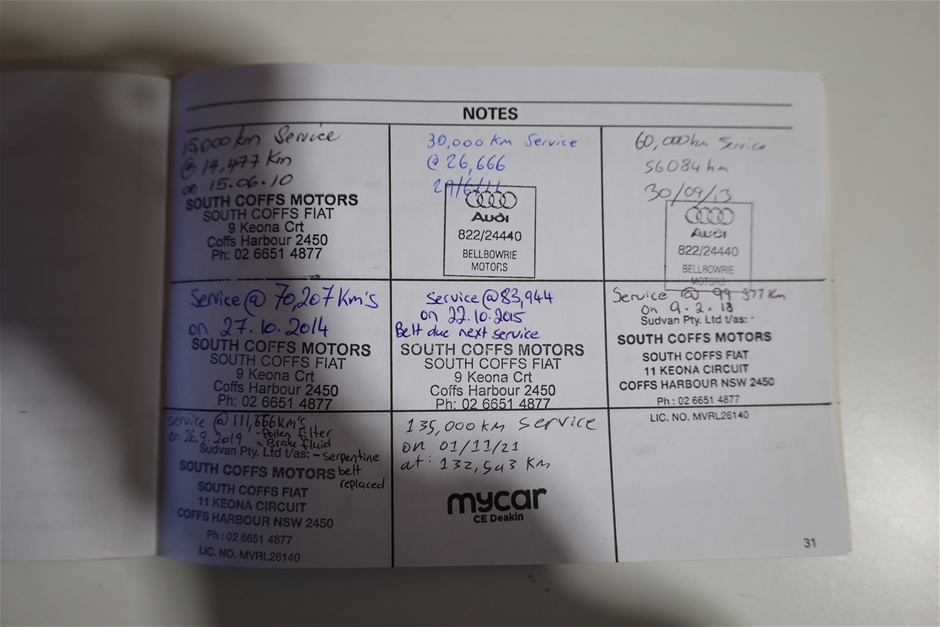 NOTES
15,000 km Service
@ 14,477 Km
on 15.06.10
SOUTH COFFS MOTORS
SOUTH COFFS FIAT
9 Keona Crt
Coffs Harbour 2450
Ph: 02 6651 4877
30,000 Km Service
@ 26,666
29/6/11
Audi
822/24440
BELLBOWRIE
MOTORS
60,000km Service
56084 km
30/09/13
Audi
822/24440
BELLBOWRIE
MOTORS
Service @ 70,207 Km's
on 27.10.2014
SOUTH COFFS MOTORS
SOUTH COFFS FIAT
9 Keona Crt
Coffs Harbour 2450
Ph: 02 6651 4877
Service @ 83,944
on 22.10.2015
Belt due next service
SOUTH COFFS MOTORS
SOUTH COFFS FIAT
9 Keona Crt
Coffs Harbour 2450
Ph: 02 6651 4877
Service @ 99 377 Km
on 9.2.18
Sudvan Pty. Ltd t/as:-
SOUTH COFFS MOTORS
SOUTH COFFS FIAT
11 KEONA CIRCUIT
COFFS HARBOUR NSW 2450
Ph : 02 6651 4877
LIC. NO. MVRL26140
Service @ 111,666 KM's
on 26.9.2019 - Pollen filter
- Brake fluid
Sudvan Pty. Ltd t/as: - Serpentine
SOUTH COFFS MOTORS belt
replaced
SOUTH COFFS FIAT
11 KEONA CIRCUIT
COFFS HARBOUR NSW 2450
Ph : 02 6651 4877
LIC. NO. MVRL26140
135,000 km Service
on 01/11/21
at: 132,543 Km
mycar
CE Deakin
31